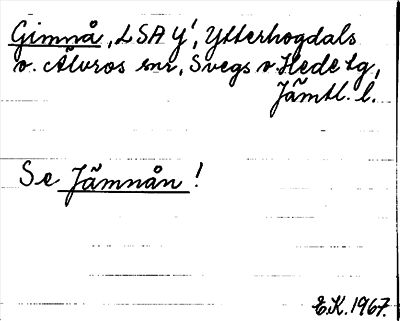 Gimnå, LSA Y!, Ytterhogdals
o. Älvros snr, Svegs o. Hede tg,
Jämtl. l.
Se Jämnån!
E.K. 1967.